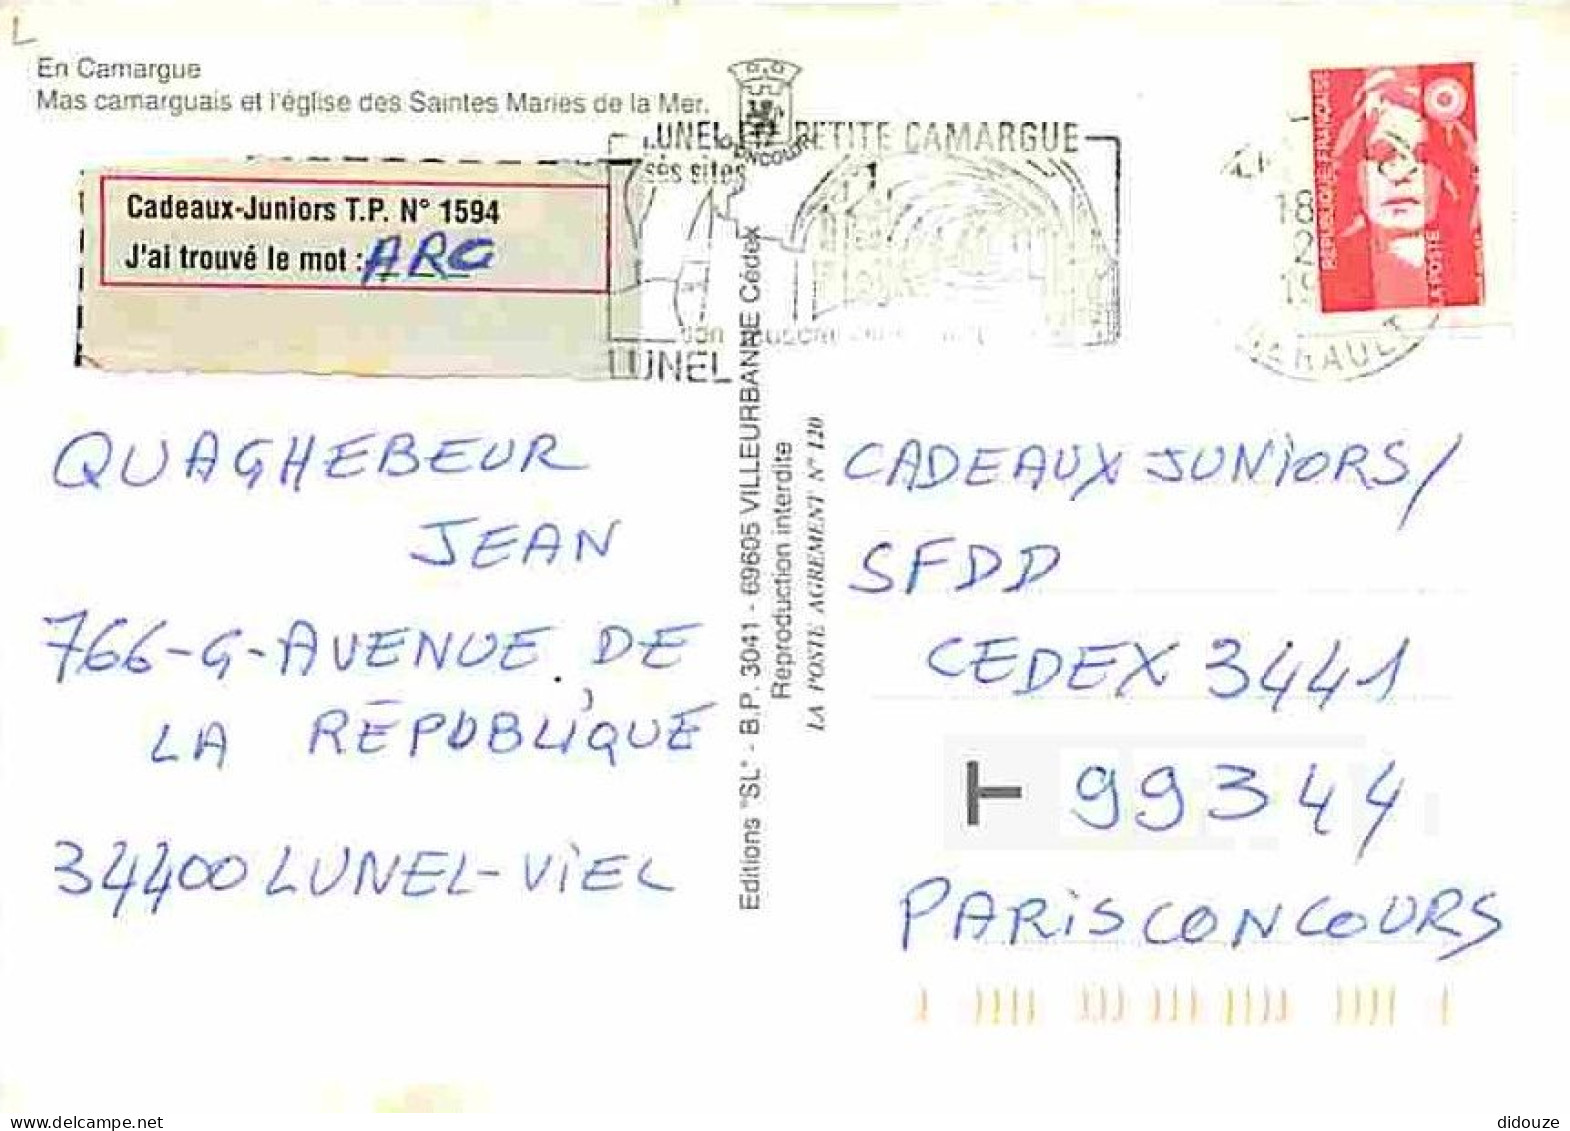 L
En Camargue
Mas camarguais et l'église des Saintes Maries de la Mer.
LUNEL EN PETITE CAMARGUE
ses sites
LUNEL
Cadeaux-Juniors T.P. N° 1594
J'ai trouvé le mot : ARC
REPUBLIQUE FRANÇAISE
LA POSTE
18
HERAULT
QUAGHEBEUR
JEAN
766-G-AVENUE DE
LA RÉPUBLIQUE
34400 LUNEL-VIEL
Editions "SL" - B.P. 3041 - 69605 VILLEURBANNE Cédex
Reproduction interdite
LA POSTE AGREMENT N° 120
CADEAUX JUNIORS/
SFDD
CEDEX 3441
T 99344
PARIS CONCOURS
didouze